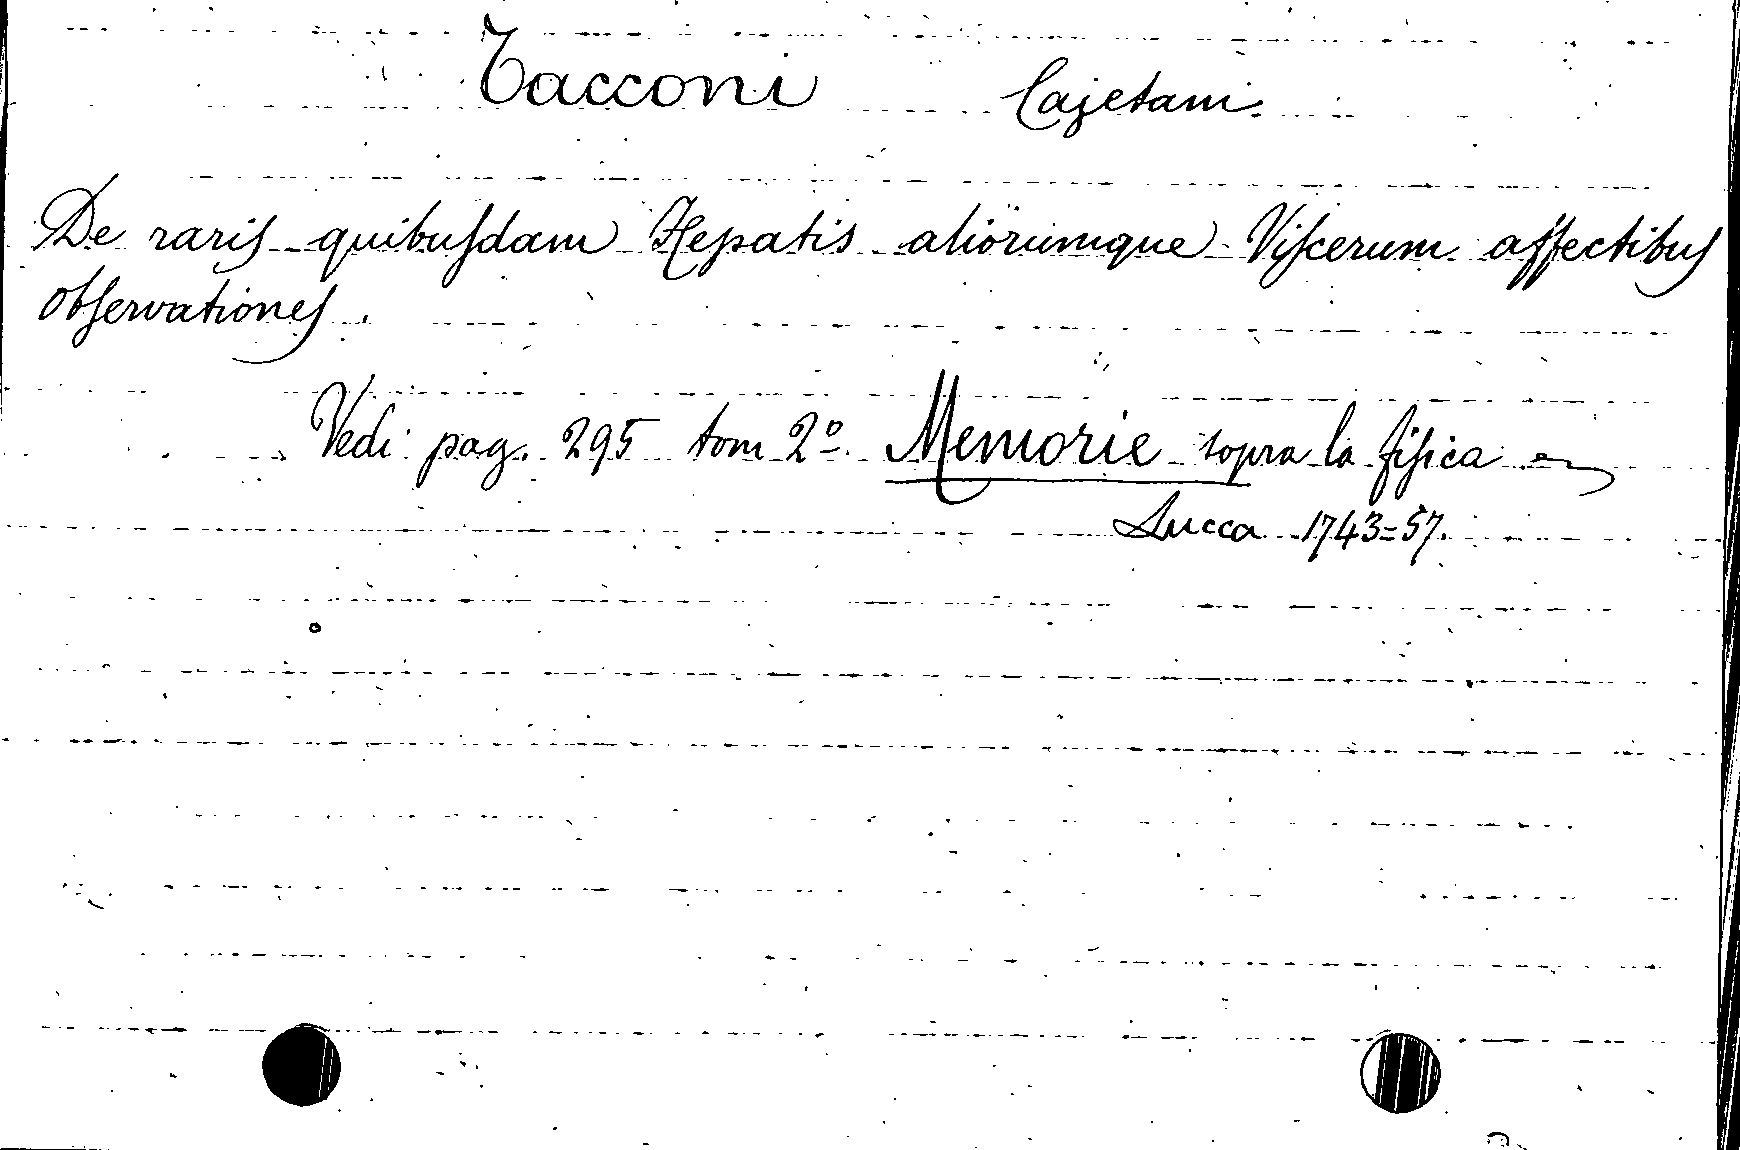 Tacconi Cajetani.
De rariſ quibuſdam Hepatis aliorumque Viſcerum affectibuſ
obſervationeſ.
Vedi pag. 295 tom 2º. Memorie sopra la fiſica
Lucca 1743=57.